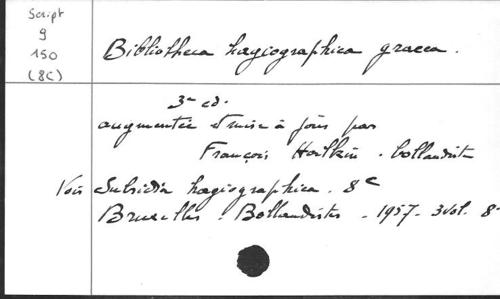 Script
9
150
(8C)
Bibliotheca hagiographica graeca.
3e ed.
augmentée et mise à jour par
François Halkin. bollandiste
Voir Subsidia hagiographica. 8c
Bruxelles. Bollandistes. - 1957. 3 vol. 8°